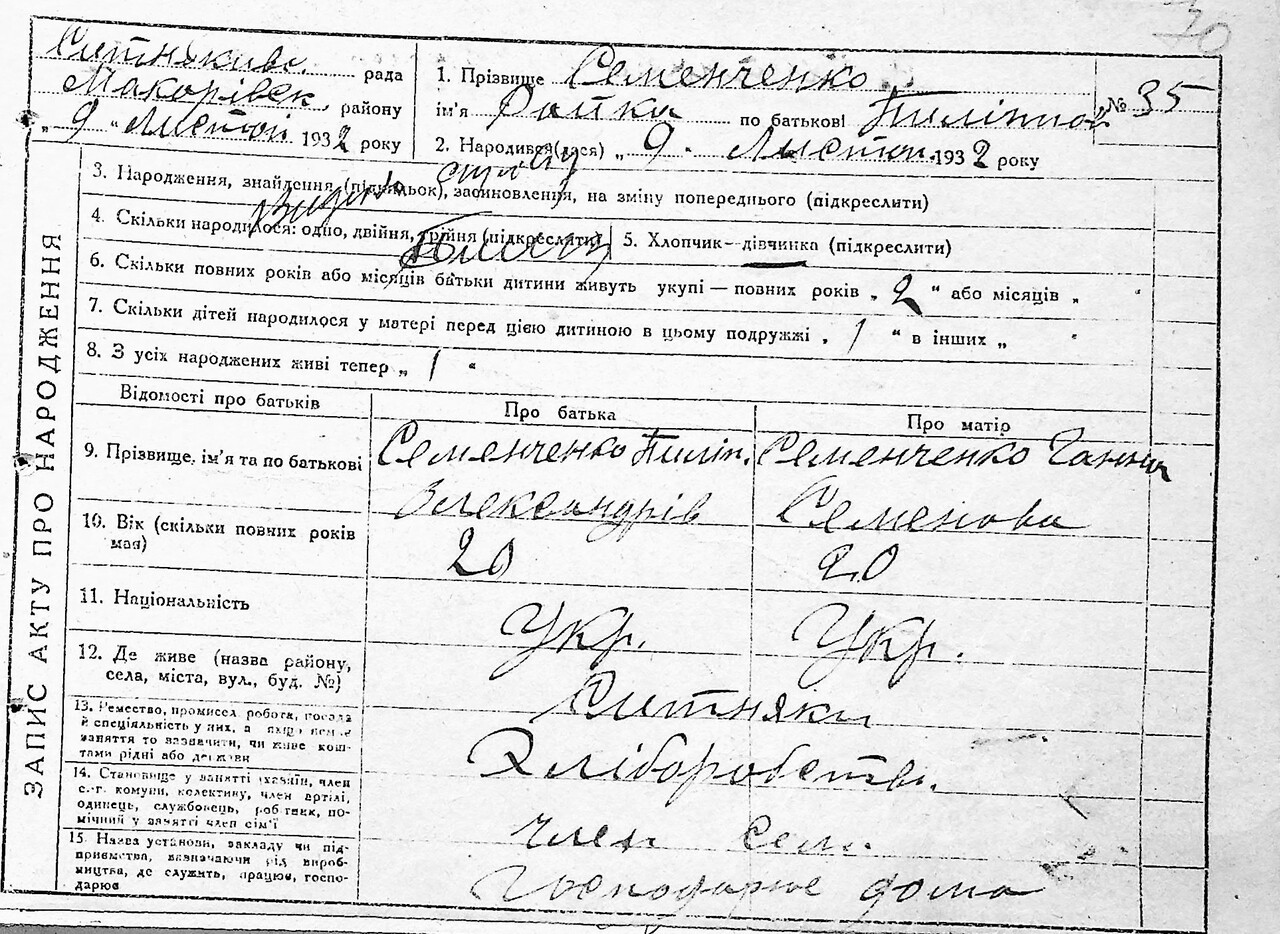 70
Ситняківс. рада
Макорівск. району
„ 9 “ Листоп 1932 року
1. Прізвище Семенченко
ім'я по батькові Пиліпов
№ 35
2. Народився(лася) „ 9 · Листоп. 1932 року
ЗАПИС АКТУ ПРО НАРОДЖЕННЯ
3. Народження, знайдення (підкидьок), засиновлення, на зміну попереднього (підкреслити)
4. Скільки народилося: одно, двійня, трійня (підкреслити)
5. Хлопчик—дівчинка (підкреслити)
6. Скільки повних років або місяців батьки дитини живуть укупі — повних років „ 2 “ або місяців „ “
7. Скільки дітей народилося у матері перед цією дитиною в цьому подружжі „ 1 “ в інших „ “
8. З усіх народжених живі тепер „ 1 “
Відомості про батьків
Про батька
Про матір
9. Прізвище, ім'я та по батькові
Семенченко Пиліп.
Олександрів
Семенченко Ганна
Семенова
10. Вік (скільки повних років
мая)
20
20
11. Національність
Укр.
Укр.
12. Де живе (назва району,
села, міста, вул., буд. №)
Ситняки
13. Ремество, промисел, робота, посада
й спеціальність у них, а якщо немає
заняття то зазначити, чи живе кош-
тами рідні або держави
Хліборобств.
14. Становище у занятті (хазяїн, член
с.-г. комуни, колективу, член артілі,
одинець, службовець, робітник, по-
мічний у занятті член сім'ї
член сем.
15. Назва установи, закладу чи під-
приємства, визначаючи рід вироб-
ництва, де служить, працює, госпо-
дарює
Господарює дома